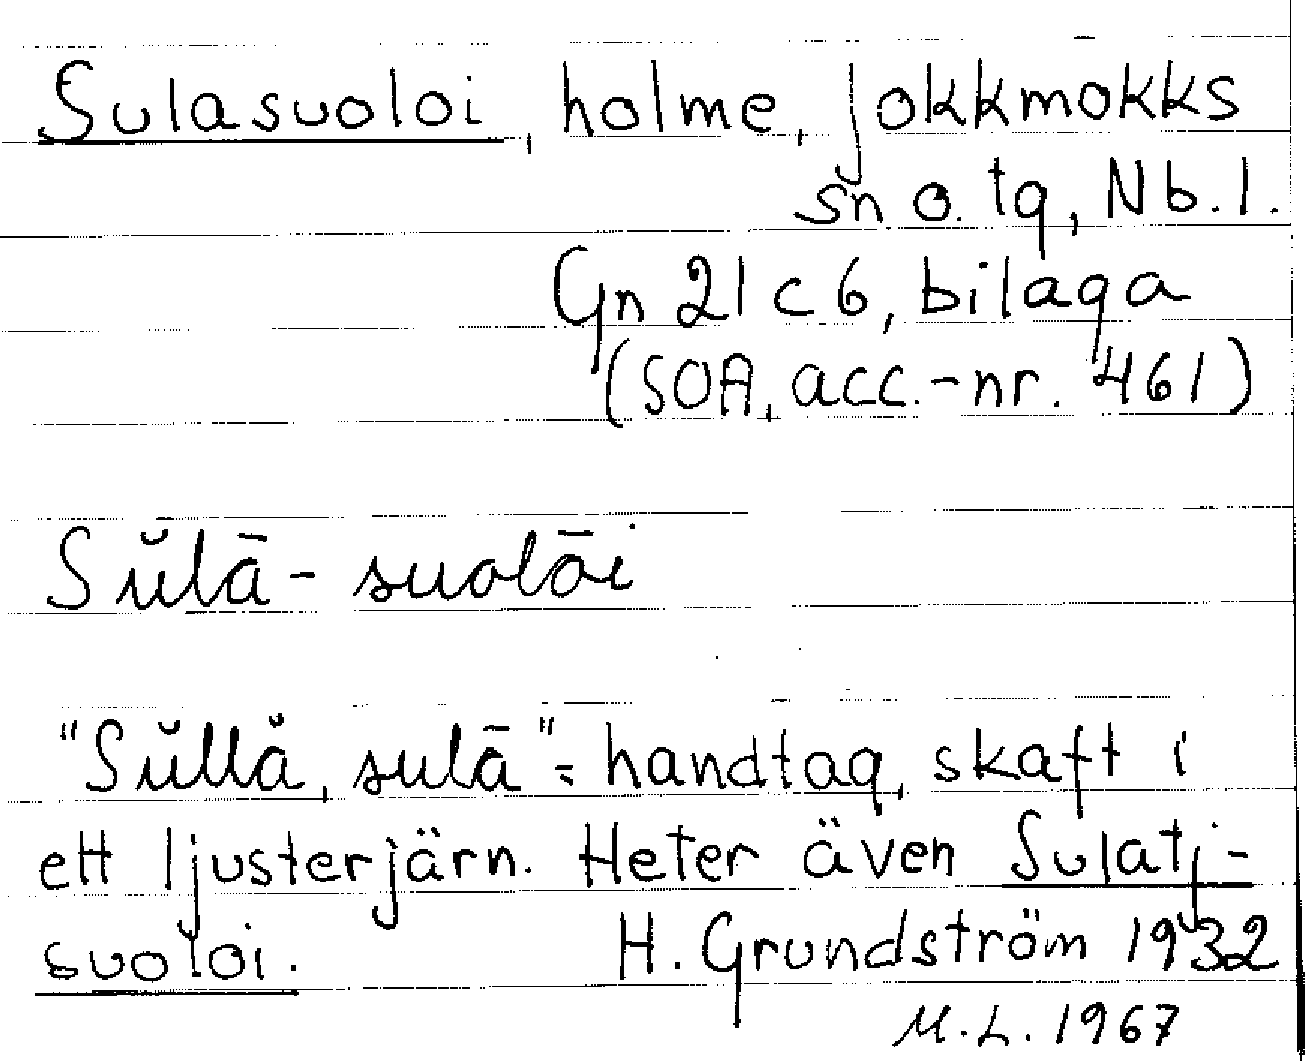 Sulasuoloi, holme, Jokkmokks
sn o. tg, Nb.l.
Gn 21 c 6, bilaga
(SOA, acc.-nr. 461)
Sŭlā-suolōi
"Sŭllå̆, sulā" = handtag, skaft i
ett ljusterjärn. Heter även Sulatj-
suoloi. H. Grundström 1932
M.L. 1967